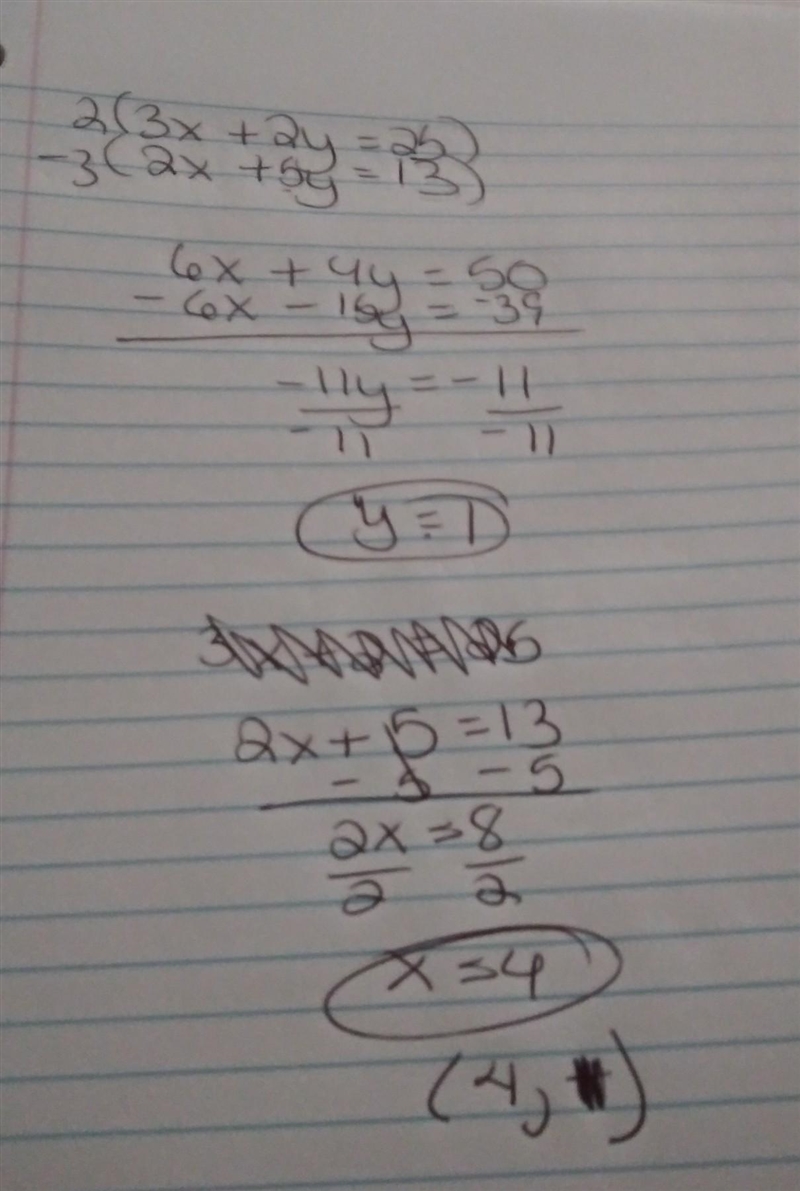 2(3x + 2y = 25)
-3(2x + 5y = 13)
6x + 4y = 50
- 6x - 15y = -39
-11y = -11
-11 -11
y = 1
2x + 5 = 13
- 5 - 5
2x = 8
2 2
x = 4
(4, )